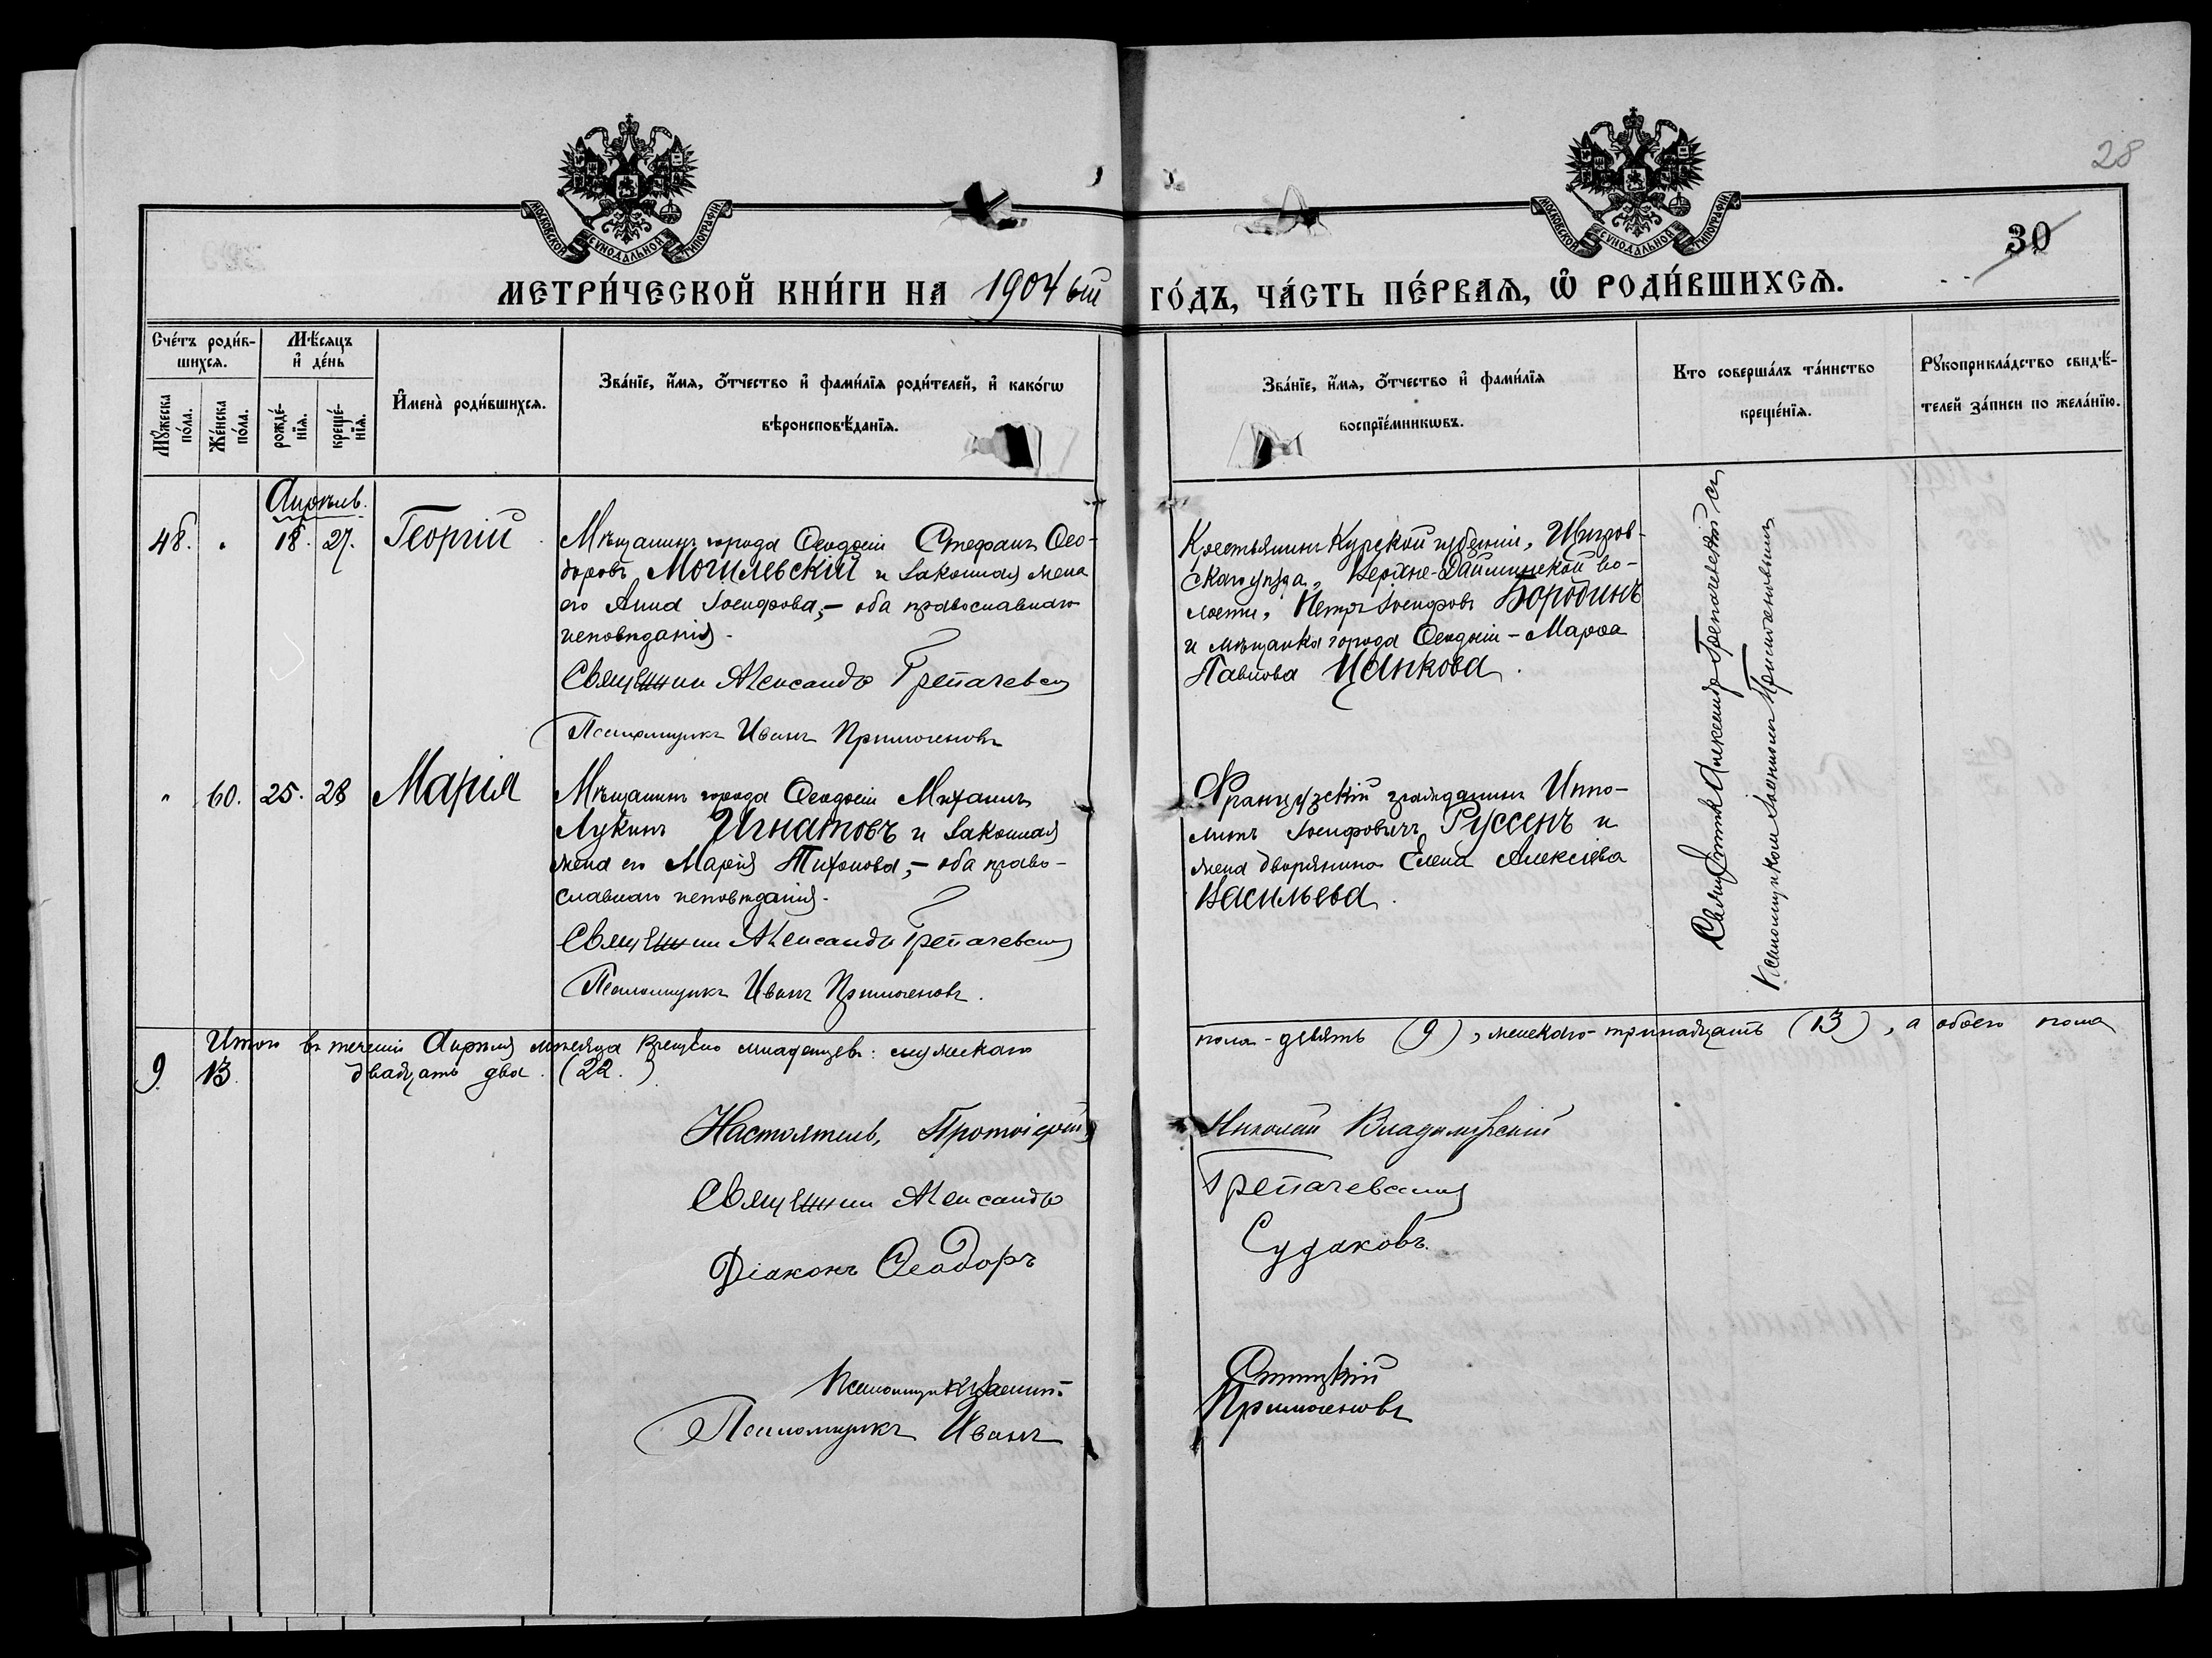 28
30
МОСКОВСКОЙ СѴНОДАЛЬНОЙ ТИПОГРАФІИ
МОСКОВСКОЙ СѴНОДАЛЬНОЙ ТИПОГРАФІИ
МЕТРИ́ЧЕСКОЙ КНИ́ГИ НА 1904 ый ГО́ДЪ, ЧА́СТЬ ПЕ́РВАѦ, Ѡ҆ РОДИ́ВШИХСѦ.
Сче́тъ роди́в-
шихсѧ.
Мꙋ́жеска
по́ла.
Же́нска
по́ла.
Мѣ́сѧцъ
и҆ де́нь
рожде́-
нїѧ.
креще́-
нїѧ.
И҆мена̀ роди́вшихсѧ.
Зва́нїе, и҆́мѧ, ѻ҆́тчество и҆ фами́лїѧ роди́телей, и҆ како́гѡ
вѣроисповѣ́данїѧ.
Зва́нїе, и҆́мѧ, ѻ҆́тчество и҆ фами́лїѧ
воспрїе́мникѡвъ.
Кто соверша́лъ та́инство
креще́нїѧ.
Рꙋкоприкла́дство свидѣ́-
телей за́писи по жела́нїю.
Апрѣль.
48. " 18. 27. Георгій
Мѣщанинъ города Ѳеодосіи Стефанъ Ѳео-
доровъ Могилевскій и законная жена
его Анна Іосифова, – оба православнаго
исповѣданія.
Священник Александр Грепачевский
Псаломщикъ Иванъ Примоченовъ
Крестьянинъ Курской губерніи, Щигров-
скаго уѣзда, Верхне-Дайменской во-
лости, Петръ Іосифовъ Бородинъ
и мѣщанка города Ѳеодосіи – Марѳа
Павлова Цанкова.
Священник Александр Грепачевский съ
Псаломщикомъ Іоанномъ Примоченовымъ
" 60. 25. 28 Марія
Мѣщанинъ города Ѳеодосіи Михаилъ
Лукинъ Игнатовъ и законная
жена его Марія Тихонова, – оба право-
славнаго исповѣданія.
Священник Александр Грепачевский
Псаломщикъ Иванъ Примоченовъ.
Французскій гражданинъ Иппо-
литъ Іосифовичъ Руссенъ и
жена дворянина Елена Алексѣева
Васильева.
Итого въ теченіи Апрѣля мѣсяца крещено младенцевъ: мужскаго пола – девять (9), женскаго – тринадцать (13), а обоего пола
9. 13. двадцать два. (22.)
Настоятель, Протоіерей, Николай Владимірскій
Священник Александр Грепачевский
Діаконъ Ѳеодоръ Судаковъ.
Псаломщикъ
Псаломщикъ Иванъ Примоченовъ